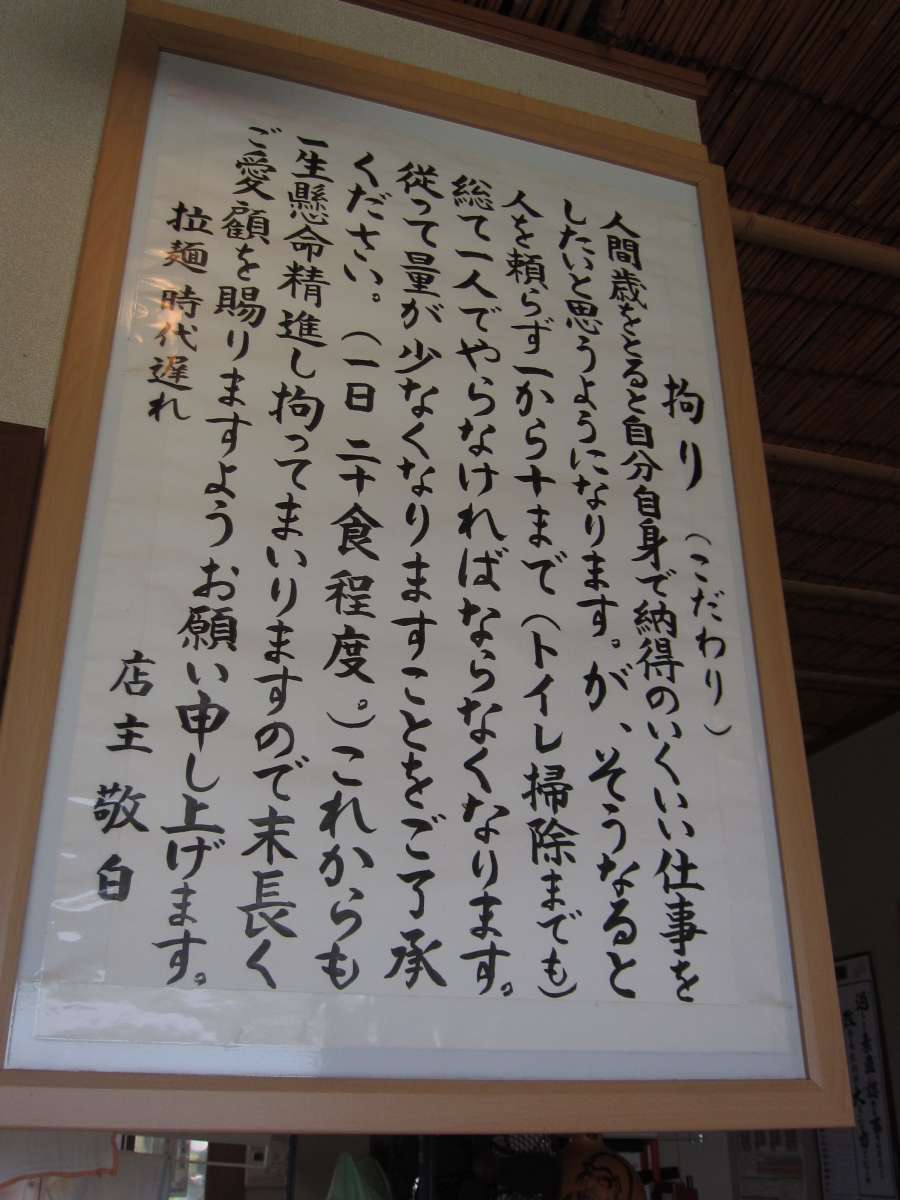 拘り(こだわり)
人間歳をとると自分自身で納得のいくいい仕事を
したいと思うようになります。が、そうなると
人を頼らず一から十まで(トイレ掃除までも)
総て一人でやらなければならなくなります。
従って量が少なくなりますことをご了承
ください。(一日 二十食程度。)これからも
一生懸命精進し拘ってまいりますので末長く
ご愛顧を賜りますようお願い申し上げます。
拉麺 時代遅れ
店主 敬白